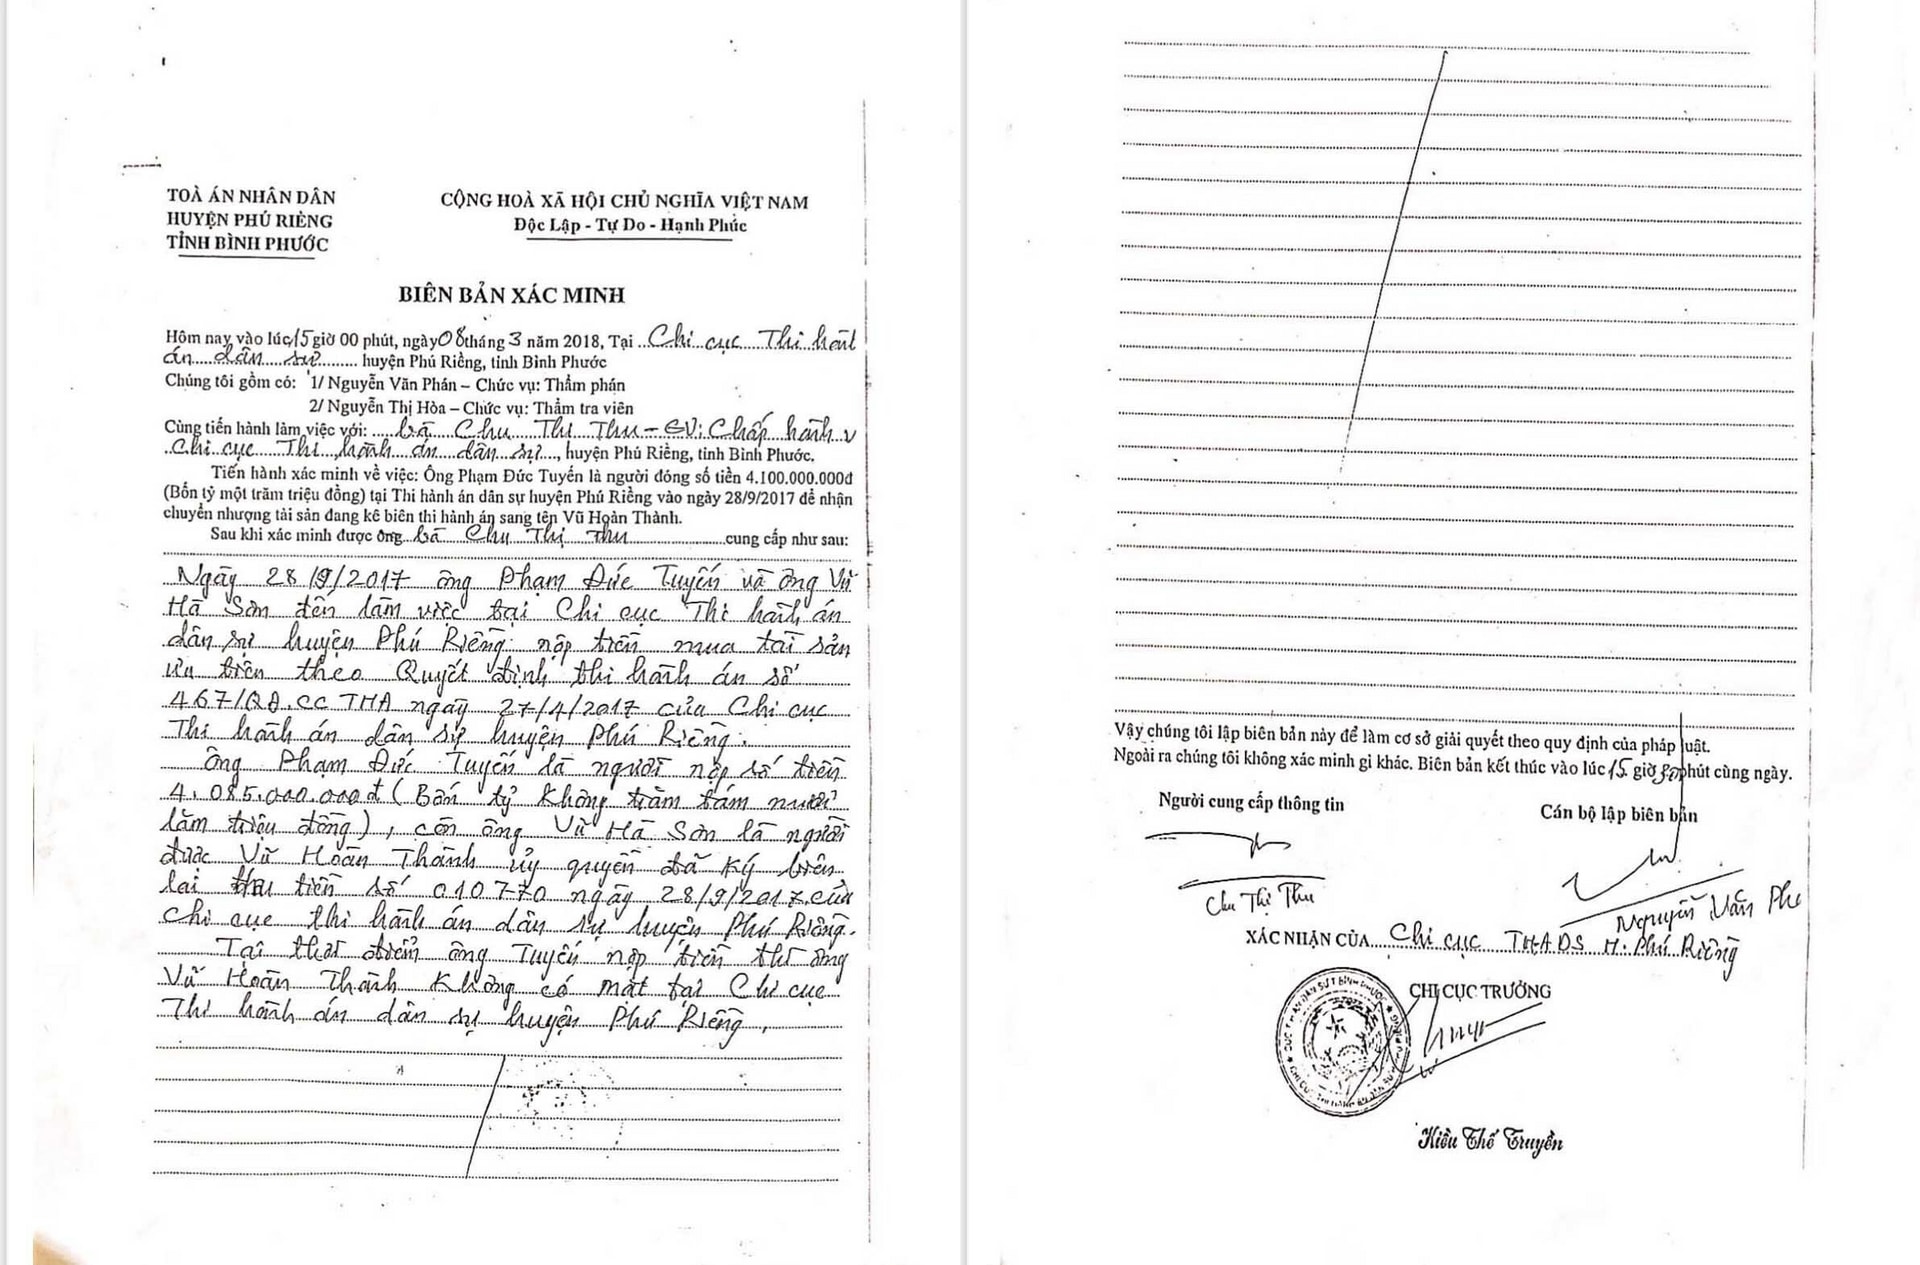 TOÀ ÁN NHÂN DÂN
HUYỆN PHÚ RIỀNG
TỈNH BÌNH PHƯỚC
CỘNG HOÀ XÃ HỘI CHỦ NGHĨA VIỆT NAM
Độc Lập - Tự Do - Hạnh Phúc
BIÊN BẢN XÁC MINH
Hôm nay vào lúc 15 giờ 00 phút, ngày 08 tháng 3 năm 2018, Tại Chi cục Thi hành
án dân sự huyện Phú Riềng, tỉnh Bình Phước
Chúng tôi gồm có: 1/ Nguyễn Văn Phán – Chức vụ: Thẩm phán
2/ Nguyễn Thị Hòa – Chức vụ: Thẩm tra viên
Cùng tiến hành làm việc với: bà Chu Thị Thu – CV: Chấp hành v
Chi cục Thi hành án dân sự, huyện Phú Riềng, tỉnh Bình Phước.
Tiến hành xác minh về việc: Ông Phạm Đức Tuyến là người đóng số tiền 4.100.000.000đ
(Bốn tỷ một trăm triệu đồng) tại Thi hành án dân sự huyện Phú Riềng vào ngày 28/9/2017 để nhận
chuyển nhượng tài sản đang kê biên thi hành án sang tên Vũ Hoàn Thành.
Sau khi xác minh được ông bà Chu Thị Thu cung cấp như sau:
Ngày 28/9/2017 ông Phạm Đức Tuyến và ông Vũ
Hà Sơn đến làm việc tại Chi cục Thi hành án
dân sự huyện Phú Riềng nộp tiền mua tài sản
ưu tiên theo Quyết định thi hành án số
467/QĐ.CCTHA ngày 27/4/2017 của Chi cục
Thi hành án dân sự huyện Phú Riềng.
Ông Phạm Đức Tuyến là người nộp số tiền
4.085.000.000đ (Bốn tỷ không trăm tám mươi
lăm triệu đồng), còn ông Vũ Hà Sơn là người
được Vũ Hoàn Thành ủy quyền đã ký biên
lai thu tiền số 010770 ngày 28/9/2017 của
chi cục thi hành án dân sự huyện Phú Riềng.
Tại thời điểm ông Tuyến nộp tiền thì ông
Vũ Hoàn Thành không có mặt tại Chi cục
Thi hành án dân sự huyện Phú Riềng.
Vậy chúng tôi lập biên bản này để làm cơ sở giải quyết theo quy định của pháp luật.
Ngoài ra chúng tôi không xác minh gì khác. Biên bản kết thúc vào lúc 15 giờ 30 phút cùng ngày.
Người cung cấp thông tin
Cán bộ lập biên bản
Chu Thị Thu
Nguyễn Văn Phá
XÁC NHẬN CỦA Chi cục THADS H. Phú Riềng
CHI CỤC TRƯỞNG
Kiều Thế Truyền